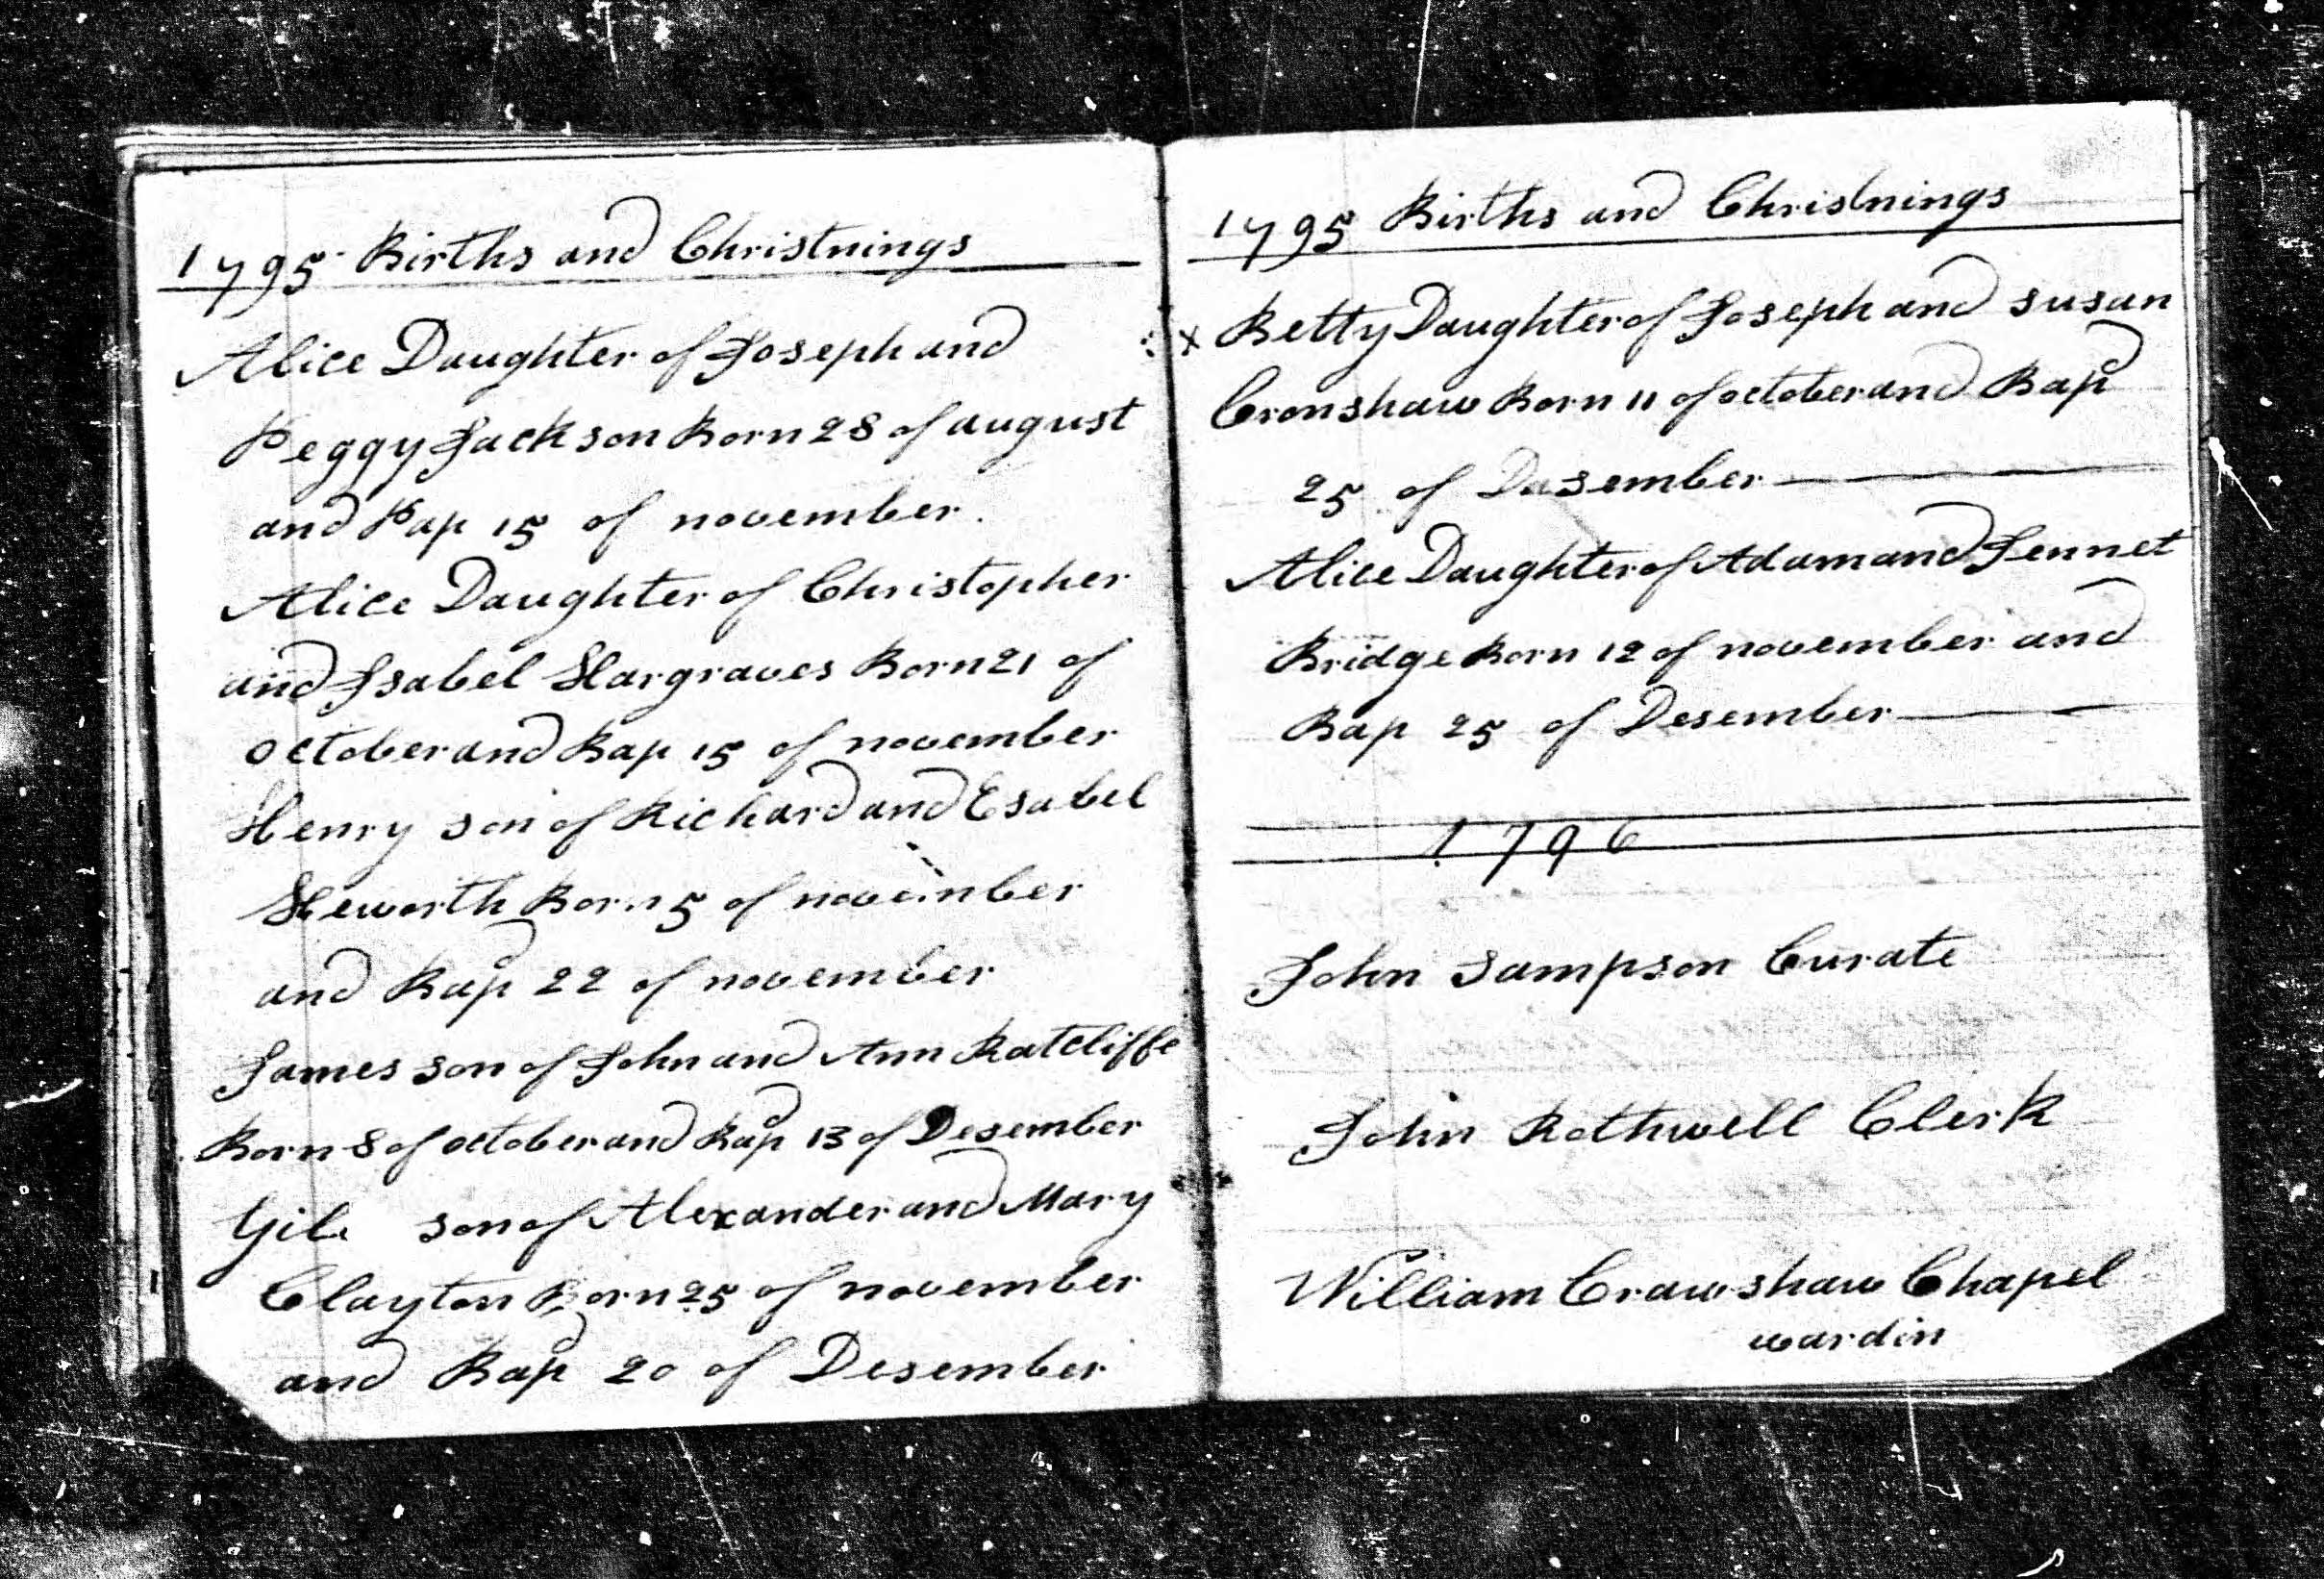 1795 Births and Christnings
Alice Daughter of Joseph and
Peggy Jackson Born 28 of august
and Pap 15 of november
Alice Daughter of Christopher
and Isabel Hargraves Born 21 of
October and Bap 15 of november
Henry son of Richard and Esabel
Heworth Born 5 of november
and Bapd 22 of november
James son of John and Ann Ratcliffe
Born 8 of october and Bapd 13 of Desember
son of Alexander and Mary
Clayton Born 25 of november
and Bapd 20 of Desember
1795 Births and Christnings
x Betty Daughter of Joseph and susan
Cronshaw Born 11 of october and Bapd
25 of Dasember
Alice Daughter of Adam and Jennet
Bridge Born 12 of november and
Bap 25 of Desember
1796
John Sampson Curate
John Rothwell Clerk
William Crawshaw Chapel
wardin